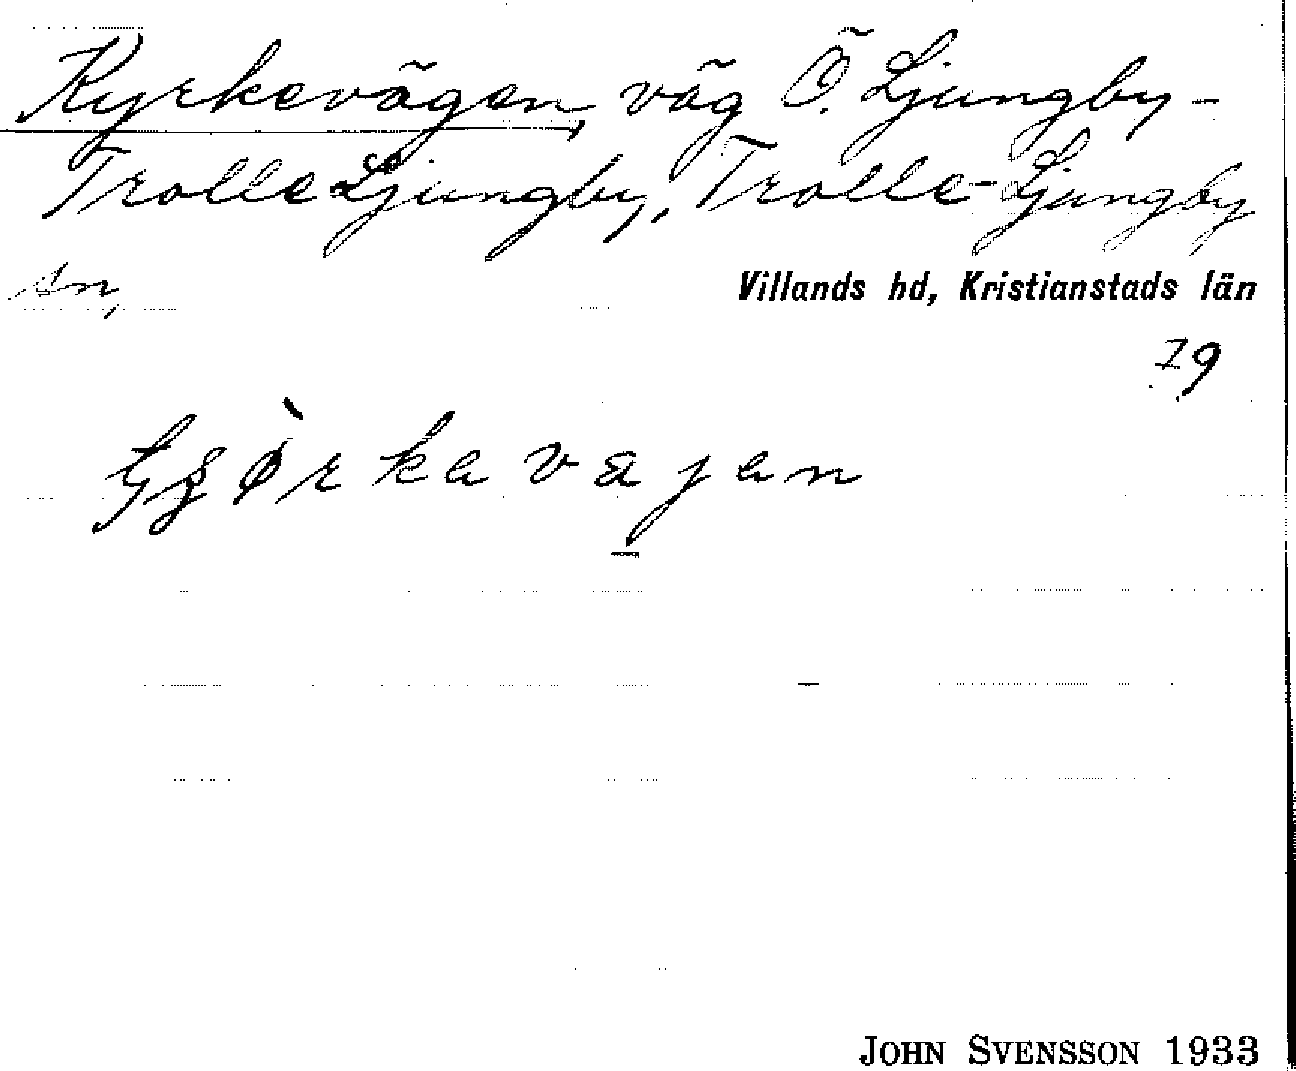 Kyrkevägen, väg Ö. Ljungby-
Trolle Ljungby, Trolle-Ljungby
sn, Villands hd, Kristianstads län
79
JOHN SVENSSON 1933